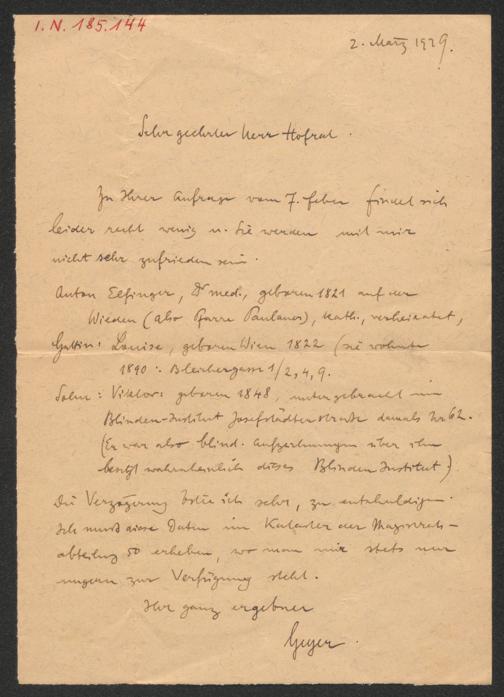 I. N. 185.144
2. März 1929.
Sehr geehrter Herr Hofrat.
Zu Ihrer Anfrage vom 7. Feber findet sich
leider recht wenig u. Sie werden mit mir
nicht sehr zufrieden sein.
Anton Elfinger, Dr med., geboren 1821 auf der
Wieden (also Pfarre Paulaner), kath., verheiratet,
Gattin: Louise, geboren Wien 1822 (sie wohnte
1890: Bleichergasse 1/2, 4, 9.
Sohn: Viktor: geboren 1848, untergebracht im
Blinden-Institut Josefstädterstraße damals Nr 62.
(Er war also blind. Aufzeichnungen über ihn
besitzt wahrscheinlich dieses Blinden Institut).
Die Verzögerung bitte ich sehr, zu entschuldigen.
Ich muß diese Daten im Kataster der Magistrats-
abteilung 50 erheben, wo man mir stets nur
ungern zur Verfügung steht.
Ihr ganz ergebner
Geyer.